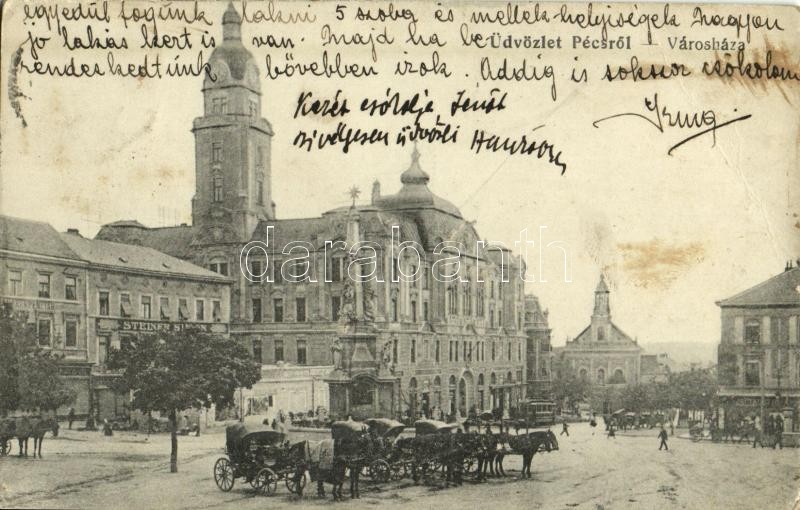 egyedül fogunk lakni 5 szoba és mellék helyiségek nagyon
jó lakás kert is van. Majd ha be
rendeskedtünk bővebben irok. Addig is sokszor csókolom
Üdvözlet Pécsről – Városháza
Irma
Kezét csókolja, Jenőt
szivélyesen üdvözli
STEINER SIMON
darabanth